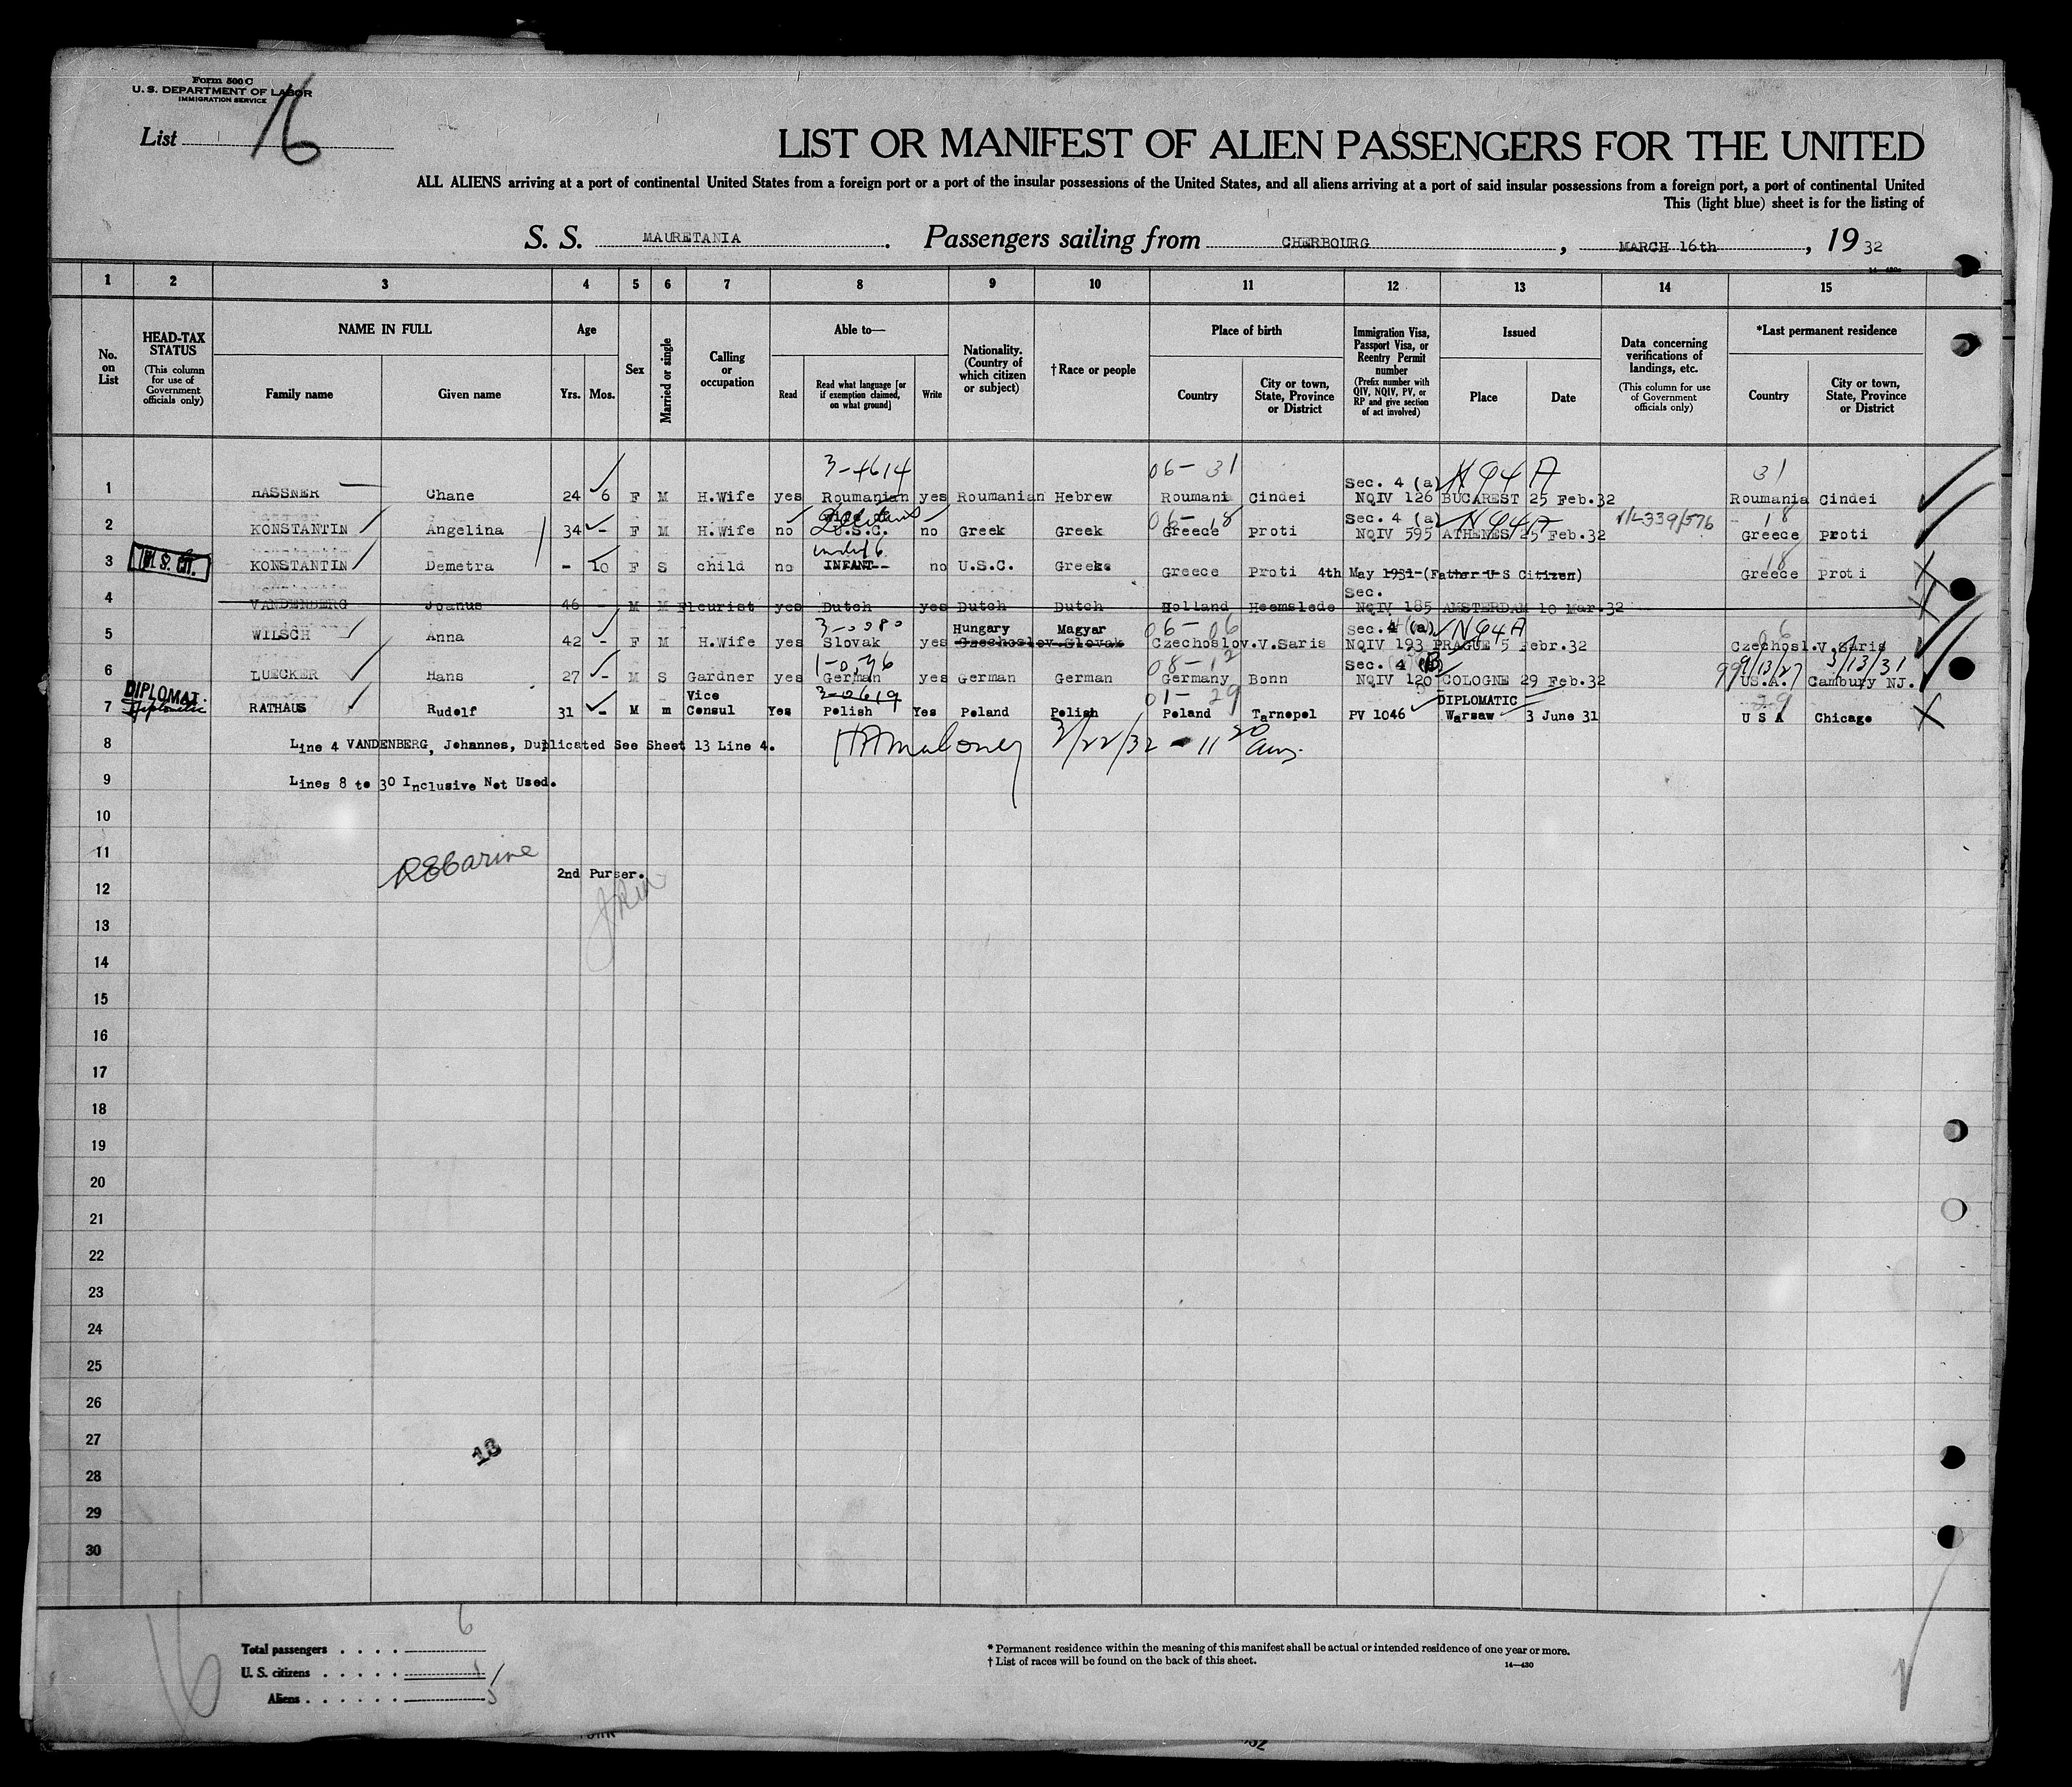 Form 500 C
U. S. DEPARTMENT OF LABOR
IMMIGRATION SERVICE
List 16
LIST OR MANIFEST OF ALIEN PASSENGERS FOR THE UNITED
ALL ALIENS arriving at a port of continental United States from a foreign port or a port of the insular possessions of the United States, and all aliens arriving at a port of said insular possessions from a foreign port, a port of continental United
This (light blue) sheet is for the listing of
S. S. MAURETANIA. Passengers sailing from CHERBOURG, MARCH 16th, 19 32
1 2 3 4 5 6 7 8 9 10 11 12 13 14 15
No. on List
HEAD-TAX STATUS (This column for use of Government officials only)
NAME IN FULL
Family name Given name
Age
Yrs. Mos.
Sex
Married or single
Calling or occupation
Able to—
Read Read what language [or if exemption claimed, on what ground] Write
Nationality. (Country of which citizen or subject)
†Race or people
Place of birth
Country City or town, State, Province or District
Immigration Visa, Passport Visa, or Reentry Permit number (Prefix number with QIV, NQIV, PV, or RP and give section of act involved)
Issued
Place Date
Data concerning verifications of landings, etc. (This column for use of Government officials only)
*Last permanent residence
Country City or town, State, Province or District
3-4614 06-31 Sec. 4 (a) N94A 31
1 HASSNER Chane 24 6 F M H.Wife yes Roumanian yes Roumanian Hebrew Roumani Cindei NQIV 126 BUCAREST 25 Feb.32 Roumania Cindei
06-18 Sec. 4 (a) N94A V/L-339/576 18
2 KONSTANTIN Angelina 34 - F M H.Wife no U.S.C. no Greek Greek Greece Proti NQIV 595 ATHENES 25 Feb.32 Greece Proti
U.S.Cit. 18
3 KONSTANTIN Demetra - 10 F S child no INFANT-- no U.S.C. Greeks Greece Proti 4th May 1931-(Father U S Citizen) Greece Proti
Sec.
4 VANDENBERG Joanus 46 - M M Fleurist yes Dutch yes Dutch Dutch Holland Heemslede NQIV 185 AMSTERDAM 10 Mar.32
3-0080 Hungary Magyar 06-06 Sec. 4 (a) N94A 6
5 WILSCH Anna 42 - F M H.Wife yes Slovak yes Czechoslov. Slovak Czechoslov. V.Saris NQIV 193 PRAGUE 5 Febr.32 Czechosl. V.Saris
08-12 Sec. 4 (B) 99 9/13/27 3/13/31
6 LUECKER Hans 27 - M S Gardner yes German yes German German Germany Bonn NQIV 120 COLOGNE 29 Feb.32 US.A. Cambury NJ.
DIPLOMAT. Diplomatic Vice 3-0619 01-29 DIPLOMATIC 29
7 RATHAUS Rudolf 31 - M m Consul Yes Polish Yes Poland Polish Poland Tarnopol PV 1046 Warsaw 3 June 31 U S A Chicago
8 Line 4 VANDENBERG, Johannes, Duplicated See Sheet 13 Line 4. 3/22/32 - 11 20 am.
9 Lines 8 to 30 Inclusive Not Used.
10
11
12 2nd Purser.
13
14
15
16
17
18
19
20
21
22
23
24
25
26
27
28
29
30
16
Total passengers . . . . 6
U. S. citizens . . . . . 1
Aliens . . . . . . 5
* Permanent residence within the meaning of this manifest shall be actual or intended residence of one year or more.
† List of races will be found on the back of this sheet.
14—430